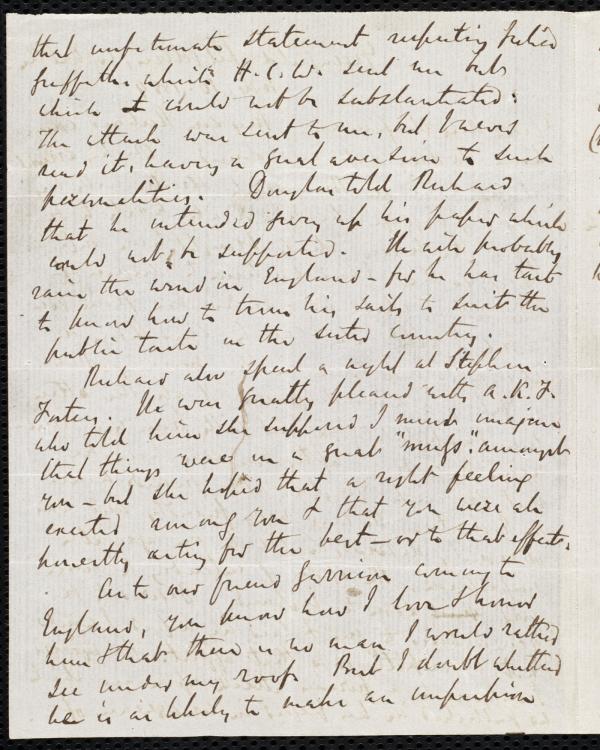 that unfortunate statement respecting Julia
Griffiths which H.C.W. sent me but
which I could not be substantiated:
The attack was sent to me, but I never
read it, having a great aversion to such
personalities. Douglas told Richard
that he intended giving up his paper which
could not be supported. He will probably
raise the wind in England - for he has tact
to know how to trim his sails to suit the
public taste in the sister country.
Richard also spent a night at Stephen
Fosters. He was greatly pleased with A.K.F.
who told him she supposed I must imagine
that things were in a great "muss" amongst
you - but she hoped that a right feeling
existed among you & that you were all
honestly acting for the best - or to that effect.
As to our friend Garrison coming to
England, you know how I love & honor
him & that there is no man I would rather
see under my roof. But I doubt whether
he is as likely to make an impression